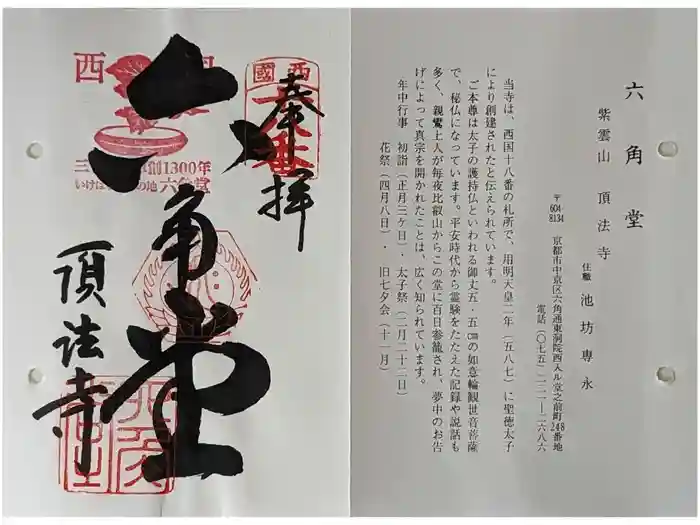 奉拝
六角堂
頂法寺
西国
十八番
西国
三十三所草創1300年
いけばな発祥の地 六角堂
六角堂
六角堂
紫雲山 頂法寺
住職 池坊専永
〒604-8134 京都市中京区六角通東洞院西入ル堂之前町248番地
電話(〇七五)二二一-二六八六
当寺は、西国十八番の札所で、用明天皇二年(五八七)に聖徳太子
により創建されたと伝えられています。
ご本尊は太子の護持仏といわれる御丈五・五㎝の如意輪観世音菩薩
で、秘仏になっています。平安時代から霊験をたたえた記録や説話も
多く、親鸞上人が毎夜比叡山からこの堂に百日参籠され、夢中のお告
げによって真宗を開かれたことは、広く知られています。
年中行事 初詣(正月三ケ日)・太子祭(二月二十二日)
花祭(四月八日)・旧七夕会(十一月)